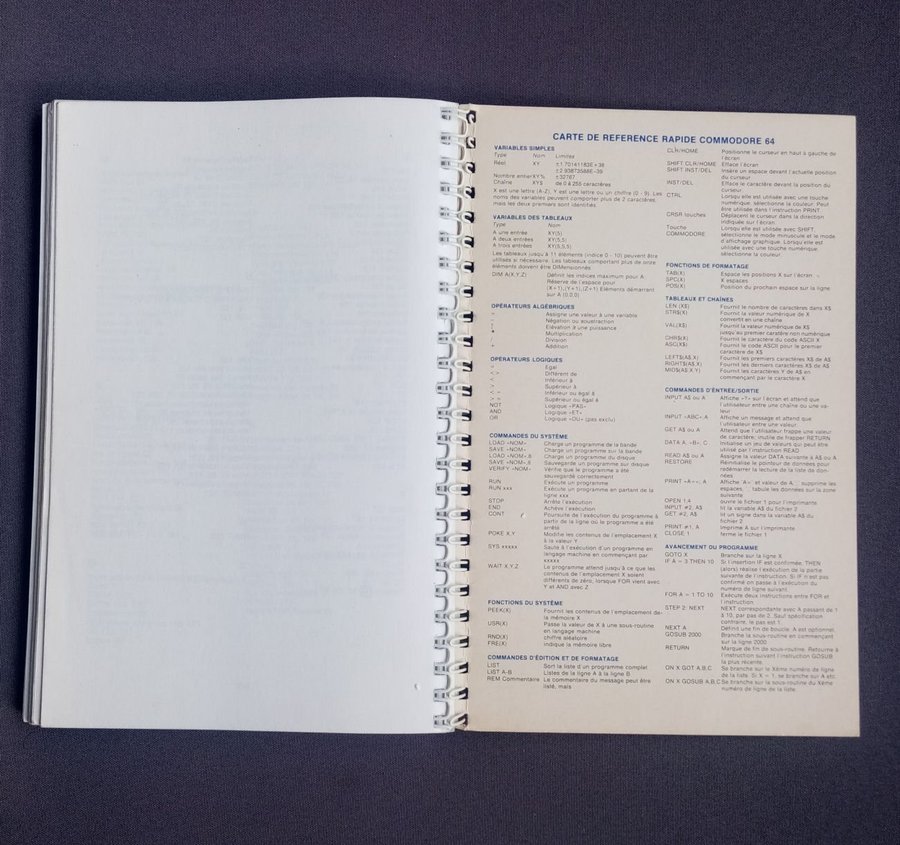 CARTE DE REFERENCE RAPIDE COMMODORE 64
VARIABLES SIMPLES
Type Nom Limites
Réel XY ±1.70141183E+38
±2.93873588E-39
Nombre entier XY% ±32767
Chaîne XY$ de 0 à 255 caractères
X est une lettre (A-Z), Y est une lettre ou un chiffre (0 - 9). Les
noms des variables peuvent comporter plus de 2 caractères,
mais les deux premiers sont identifiés.
VARIABLES DES TABLEAUX
Type Nom
A une entrée XY(5)
A deux entrées XY(5,5)
A trois entrées XY(5,5,5)
Les tableaux jusqu'à 11 éléments (indice 0 - 10) peuvent être
utilisés si nécessaire. Les tableaux comportant plus de onze
éléments doivent être DIMensionnés.
DIM A(X,Y,Z) Définit les indices maximum pour A
Réserve de l'espace pour
(X+1),(Y+1),(Z+1) Eléments démarrant
sur A (0,0,0)
OPÉRATEURS ALGÉBRIQUES
= Assigne une valeur à une variable
- Négation ou soustraction
Elévation à une puissance
* Multiplication
Division
+ Addition
OPÉRATEURS LOGIQUES
= Egal
<> Différent de
< Inférieur à
> Supérieur à
<= Inférieur ou égal à
>= Supérieur ou égal à
NOT Logique «PAS»
AND Logique «ET»
OR Logique «OU» (pas exclu)
COMMANDES DU SYSTÈME
LOAD «NOM» Charge un programme de la bande
SAVE «NOM» Charge un programme sur la bande
LOAD «NOM»,8 Charge un programme du disque
SAVE «NOM»,8 Sauvegarde un programme sur disque
VERIFY «NOM» Vérifie que le programme a été
sauvegardé correctement
RUN Exécute un programme
RUN xxx Exécute un programme en partant de la
ligne xxx
STOP Arrête l'exécution
END Achève l'exécution
CONT Poursuite de l'exécution du programme à
partir de la ligne où le programme a été
arrêté
POKE X,Y Modifie les contenus de l'emplacement X
à la valeur Y
SYS xxxxx Saute à l'exécution d'un programme en
langage machine en commençant par
xxxxx
WAIT X,Y,Z Le programme attend jusqu'à ce que les
contenus de l'emplacement X soient
différents de zéro, lorsque FOR vient avec
Y et AND avec Z
FONCTIONS DU SYSTÈME
PEEK(X) Fournit les contenus de l'emplacement de
la mémoire X
USR(X) Passe la valeur de X à une sous-routine
en langage machine
RND(X) chiffre aléatoire
FRE(X) Indique la mémoire libre
COMMANDES D'ÉDITION ET DE FORMATAGE
LIST Sort la liste d'un programme complet
LIST A-B Listes de la ligne A à la ligne B
REM Commentaire Le commentaire du message peut être
listé, mais
CLR/HOME Positionne le curseur en haut à gauche de
l'écran
SHIFT CLR/HOME Efface l'écran
SHIFT INST/DEL Insère un espace devant l'actuelle position
du curseur
INST/DEL Efface le caractère devant la position du
curseur.
CTRL Lorsqu'elle est utilisée avec une touche
numérique, sélectionne la couleur. Peut
être utilisée dans l'instruction PRINT.
CRSR touches Déplacent le curseur dans la direction
indiquée sur l'écran.
Touche Lorsqu'elle est utilisée avec SHIFT,
COMMODORE sélectionne le mode minuscule et le mode
d'affichage graphique. Lorsqu'elle est
utilisée avec une touche numérique,
sélectionne la couleur
FONCTIONS DE FORMATAGE
TAB(X) Espace les positions X sur l'écran
SPC(X) X espaces
POS(X) Position du prochain espace sur la ligne
TABLEAUX ET CHAÎNES
LEN (X$) Fournit le nombre de caractères dans X$
STR$(X) Fournit la valeur numérique de X
convertit en une chaîne
VAL(X$) Fournit la valeur numérique de X$
jusqu'au premier caratère non numérique
CHR$(X) Fournit le caractère du code ASCII X
ASC(X$) Fournit le code ASCII pour le premier
caractère de X$
LEFT$(A$,X) Fournit les premiers caractères X$ de A$
RIGHT$(A$,X) Fournit les derniers caractères X$ de A$
MID$(A$,X,Y) Fournit les caractères Y de A$ en
commençant par le caractère X
COMMANDES D'ENTRÉE/SORTIE
INPUT A$ ou A Affiche «?» sur l'écran et attend que
l'utilisateur entre une chaîne ou une va-
leur
INPUT «ABC»,A Affiche un message et attend que
l'utilisateur entre une valeur
GET A$ ou A Attend que l'utilisateur frappe une valeur
de caractère; inutile de frapper RETURN
DATA A, «B», C Initialise un jeu de valeurs qui peut être
utilisé par l'instruction READ
READ A$ ou A Assigne la valeur DATA suivante à A$ ou A
RESTORE Réinitialise le pointeur de données pour
redémarrer la lecture de la liste de don-
nées
PRINT «A=», A Affiche A= et valeur de A supprime les
espaces, tabule les données sur la zone
suivante
OPEN 1,4 ouvre le fichier 1 pour l'imprimante
INPUT #2, A$ lit la variable A$ du fichier 2
GET #2, A$ lit un signe dans la variable A$ du
fichier 2
PRINT #1, A Imprime A sur l'imprimante
CLOSE 1 ferme le fichier 1
AVANCEMENT DU PROGRAMME
GOTO X Branche sur la ligne X
IF A = 3 THEN 10 Si l'insertion IF est confirmée, THEN
(alors) réalise l'exécution de la partie
suivante de l'instruction. Si IF n'est pas
confirmé on passe à l'exécution du
numéro de ligne suivant
FOR A = 1 TO 10 Exécute deux instructions entre FOR et
l'instruction
STEP 2: NEXT NEXT correspondante avec A passant de 1
à 10, par pas de 2. Sauf spécification
contraire, le pas est 1.
NEXT A Définit une fin de boucle. A est optionnel.
GOSUB 2000 Branche la sous-routine en commençant
sur la ligne 2000
RETURN Marque de fin de sous-routine. Retourne à
l'instruction suivant l'instruction GOSUB
la plus récente.
ON X GOT A,B,C Se branche sur le Xème numéro de ligne
de la liste. Si X = 1, se branche sur A etc.
ON X GOSUB A,B,C Se branche sur la sous-routine du Xème
numéro de ligne de la liste.